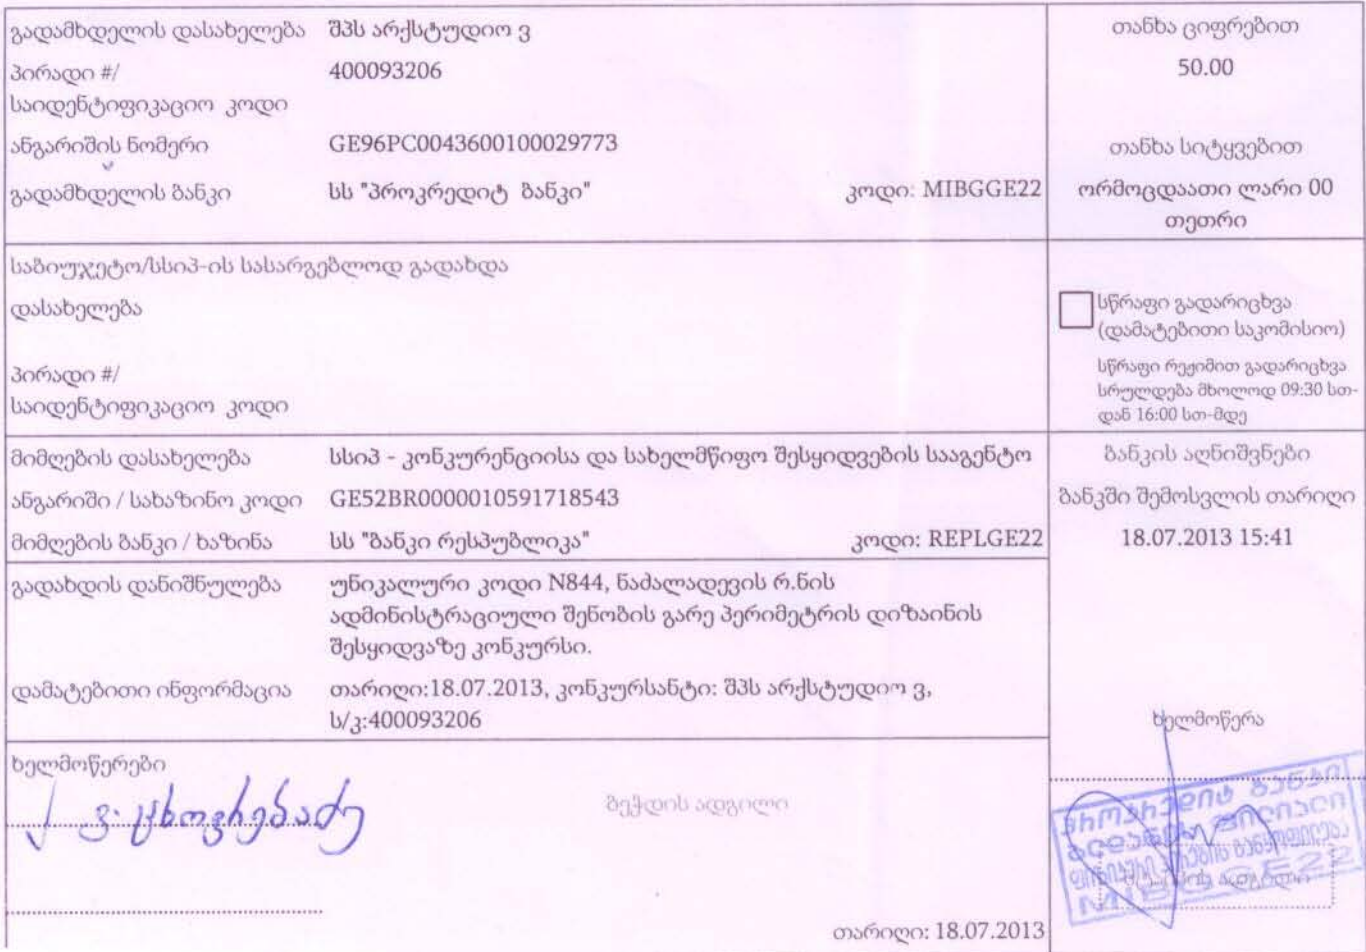 გადამხდელის დასახელება შპს არქსტუდიო ვ
პირადი #/ 400093206
საიდენტიფიკაციო კოდი
ანგარიშის ნომერი GE96PC0043600100029773
გადამხდელის ბანკი სს "პროკრედიტ ბანკი" კოდი: MIBGGE22
თანხა ციფრებით
50.00
თანხა სიტყვებით
ორმოცდაათი ლარი 00
თეთრი
საბიუჯეტო/სსიპ-ის სასარგებლოდ გადახდა
დასახელება
პირადი #/
საიდენტიფიკაციო კოდი
სწრაფი გადარიცხვა
(დამატებითი საკომისიო)
სწრაფი რეჟიმით გადარიცხვა
სრულდება მხოლოდ 09:30 სთ-
დან 16:00 სთ-მდე
მიმღების დასახელება სსიპ - კონკურენციისა და სახელმწიფო შესყიდვების სააგენტო
ანგარიში / სახაზინო კოდი GE52BR0000010591718543
მიმღების ბანკი / ხაზინა სს "ბანკი რესპუბლიკა" კოდი: REPLGE22
ბანკის აღნიშვნები
ბანკში შემოსვლის თარიღი
18.07.2013 15:41
გადახდის დანიშნულება უნიკალური კოდი N844, ნაძალადევის რ.ნის
ადმინისტრაციული შენობის გარე პერიმეტრის დიზაინის
შესყიდვაზე კონკურსი.
დამატებითი ინფორმაცია თარიღი:18.07.2013, კონკურსანტი: შპს არქსტუდიო ვ,
ს/კ:400093206
ხელმოწერა
ხელმოწერები
ვ. ცხოვრებაძე
ბეჭდის ადგილი
პროკრედიტ ბანკი
გლდანის ფილიალი
MIBGGE22
თარიღი: 18.07.2013